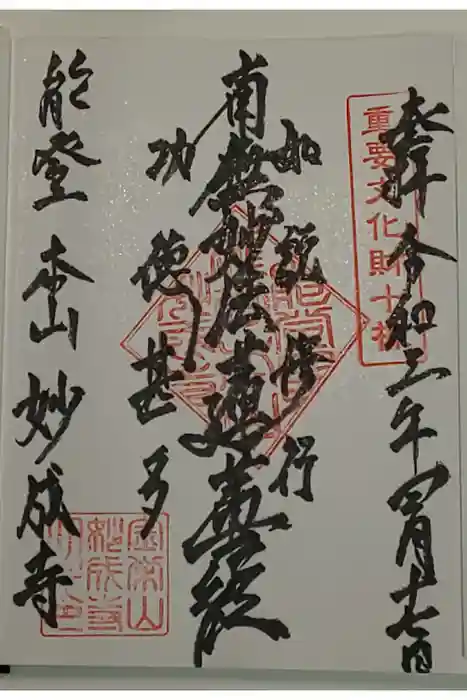 奉拝 令和三年四月十七日
重要文化財十棟
如説修行
南無妙法蓮華経
功徳甚多
能登 本山 妙成寺
金栄山妙成寺